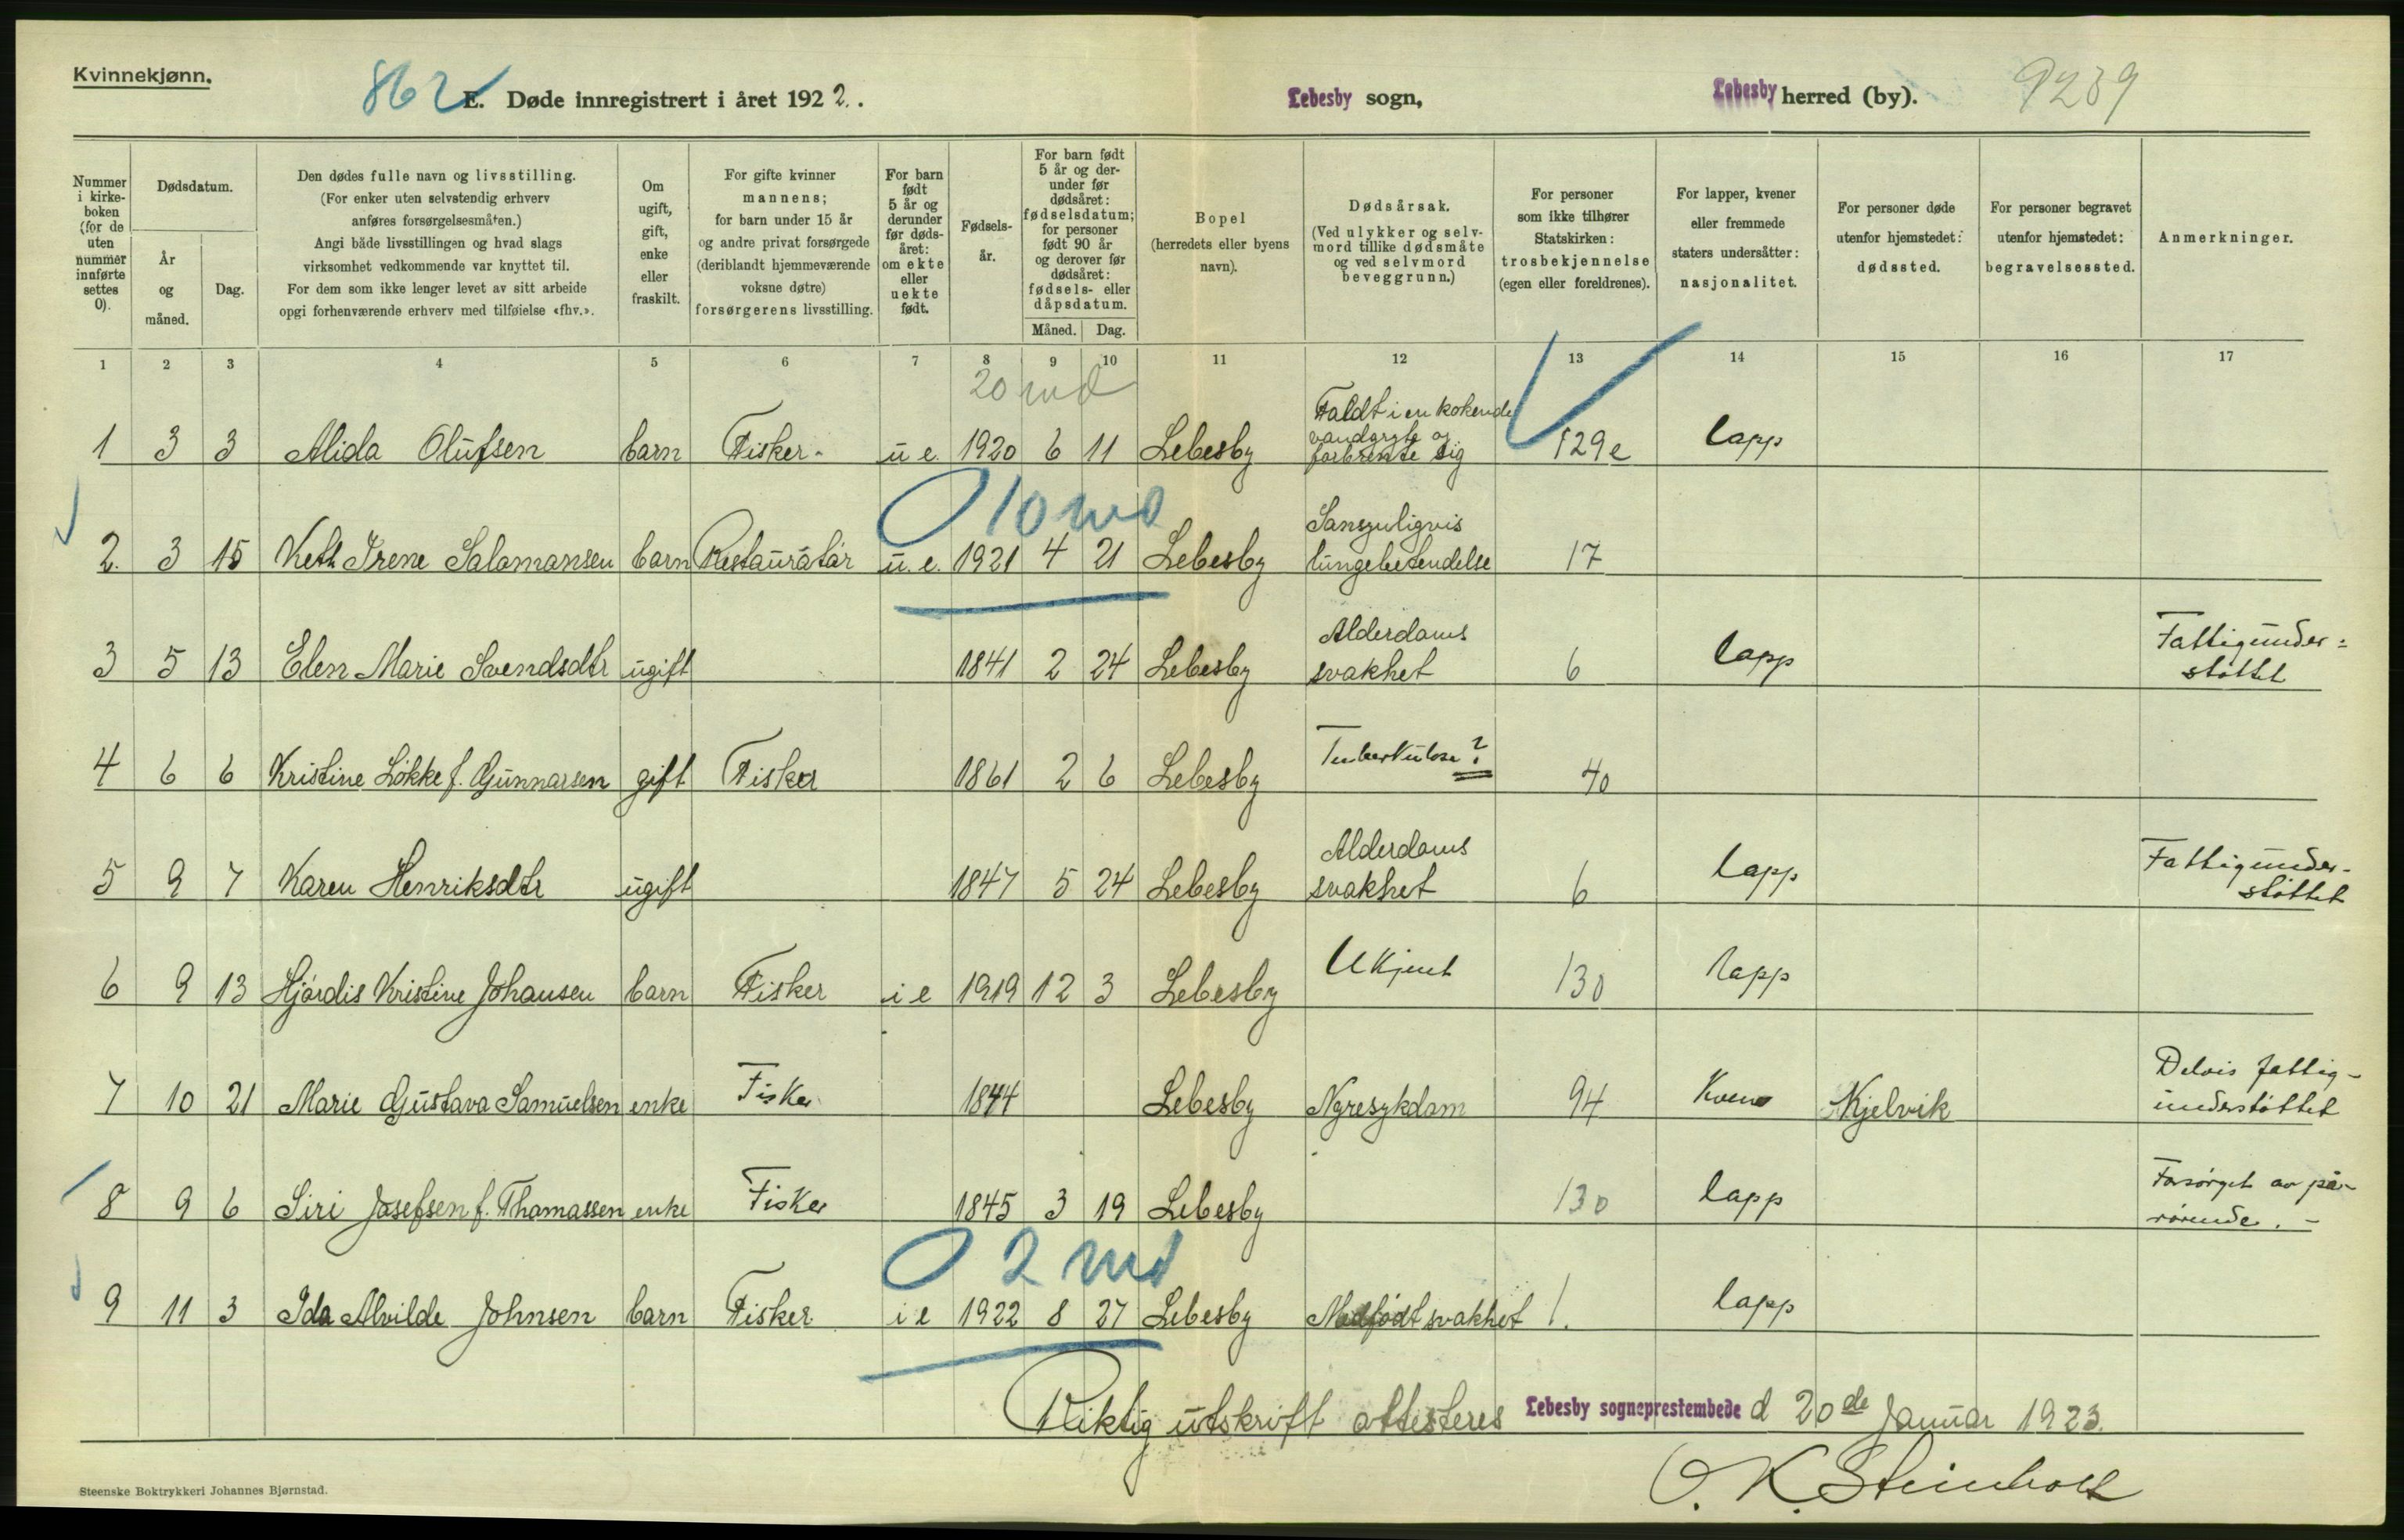 Kvinnekjønn.
862 E. Døde innregistrert i året 1922. Lebesby sogn, Lebesby herred (by). 9239
Nummer i kirkeboken (for de uten nummer innførte settes 0).
Dødsdatum.
År og måned.
Dag.
Den dødes fulle navn og livsstilling.
(For enker uten selvstendig erhverv
anføres forsørgelsesmåten.)
Angi både livsstillingen og hvad slags
virksomhet vedkommende var knyttet til.
For dem som ikke lenger levet av sitt arbeide
opgi forhenværende erhverv med tilføielse «fhv.».
Om ugift, gift, enke eller fraskilt.
For gifte kvinner
mannens;
for barn under 15 år
og andre privat forsørgede
(deriblandt hjemmeværende
voksne døtre)
forsørgerens livsstilling.
For barn født 5 år og derunder før dødsåret: om ekte eller uekte født.
Fødselsår.
For barn født
5 år og der-
under før
dødsåret:
fødselsdatum;
for personer
født 90 år
og derover før
dødsåret:
fødsels- eller
dåpsdatum.
Måned. Dag.
Bopel
(herredets eller byens
navn).
Dødsårsak.
(Ved ulykker og selv-
mord tillike dødsmåte
og ved selvmord
beveggrunn.)
For personer
som ikke tilhører
Statskirken:
trosbekjennelse
(egen eller foreldrenes).
For lapper, kvener
eller fremmede
staters undersåtter:
nasjonalitet.
For personer døde
utenfor hjemstedet:
dødssted.
For personer begravet
utenfor hjemstedet:
begravelsessted.
Anmerkninger.
1 2 3 4 5 6 7 8 9 10 11 12 13 14 15 16 17
20 md
1 3 3 Alida Olufsen barn Fisker u e 1920 6 11 Lebesby Faldt i en kokende vandgryte og forbrente sig 129e lapp
0 10 md
2. 3 15 Keth Irene Salamansen barn Restauratør u. e. 1921 4 21 Lebesby Sansynligvis lungebetendelse 17
3 5 13 Elen Marie Svendsdtr ugift 1841 2 24 Lebesby Alderdoms svakhet 6 lapp Fattigunder= støttet
4 6 6 Kristine Løkke f. Gunnarsen gift Fisker 1861 2 6 Lebesby Tuberkulose? 40
5 9 7 Karen Henriksdtr ugift 1847 5 24 Lebesby Alderdoms svakhet 6 lapp Fattigunder- støttet
6 9 13 Hjørdis Kristine Johansen barn Fisker i e 1919 12 3 Lebesby Ukjent 130 lapp
7 10 21 Marie Gustava Samuelsen enke Fisker 1844 Lebesby Nyresykdom 94 Kven Kjelvik Delvis fattig- understøttet
8 9 6 Siri Josefsen f. Thomassen enke Fisker 1845 3 19 Lebesby 130 lapp Forsørget av på- rørende. -
0 2 md
9 11 3 Ida Alvilde Johnsen barn Fisker i e 1922 8 27 Lebesby Medfødt svakhet 1. lapp
Riktig utskrift attesteres Lebesby sogneprestembede d 20de Januar 1923.
O. K. Steinholt
Steenske Boktrykkeri Johannes Bjørnstad.